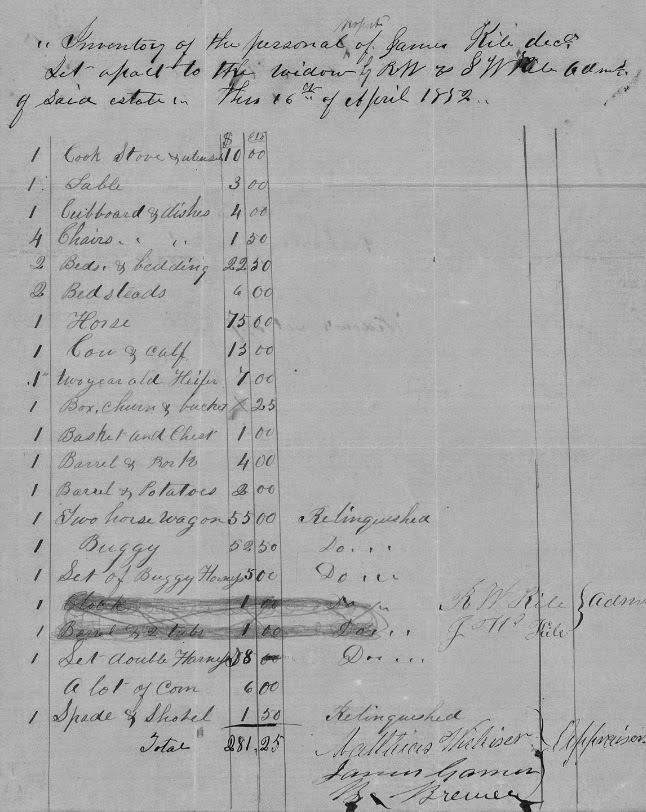 „ Inventory of the personal propt of James Kile decd
Set apart to the widow by R W & J W Kile admr.
of said estate „ This 16th of April 1852 „
$ cts
1 Cook Stove & utensils 10 00
1 Table 3 00
1 Cubboard & dishes 4 00
4 Chairs „ „ 1 50
2 Beds & bedding 22 50
2 Bedsteads 6 00
1 Horse 75 00
1 Cow & calf 13 00
1 two year old Heifer 7 00
1 Box, churn & bucket 25
1 Basket and Chest 1 00
1 Barrel & Pork 4 00
1 Barrel & Potatoes 2 00
1 Two horse wagon 55 00 Relinquished
1 Buggy 52 50 Do „ „
1 Set of Buggy Harness 5 00 Do „ „
1 Clock 1 00 Do „ R W Kile } admr
1 Barrel & 2 tubs 1 00 Do „ „ J W Kile
1 Set double Harness 8 00 Do „ „
A lot of Corn 6 00
1 Spade & Shovel 1 50 Relinquished
Total 281.25 Matthias } Appraisers
James
B. Brewer